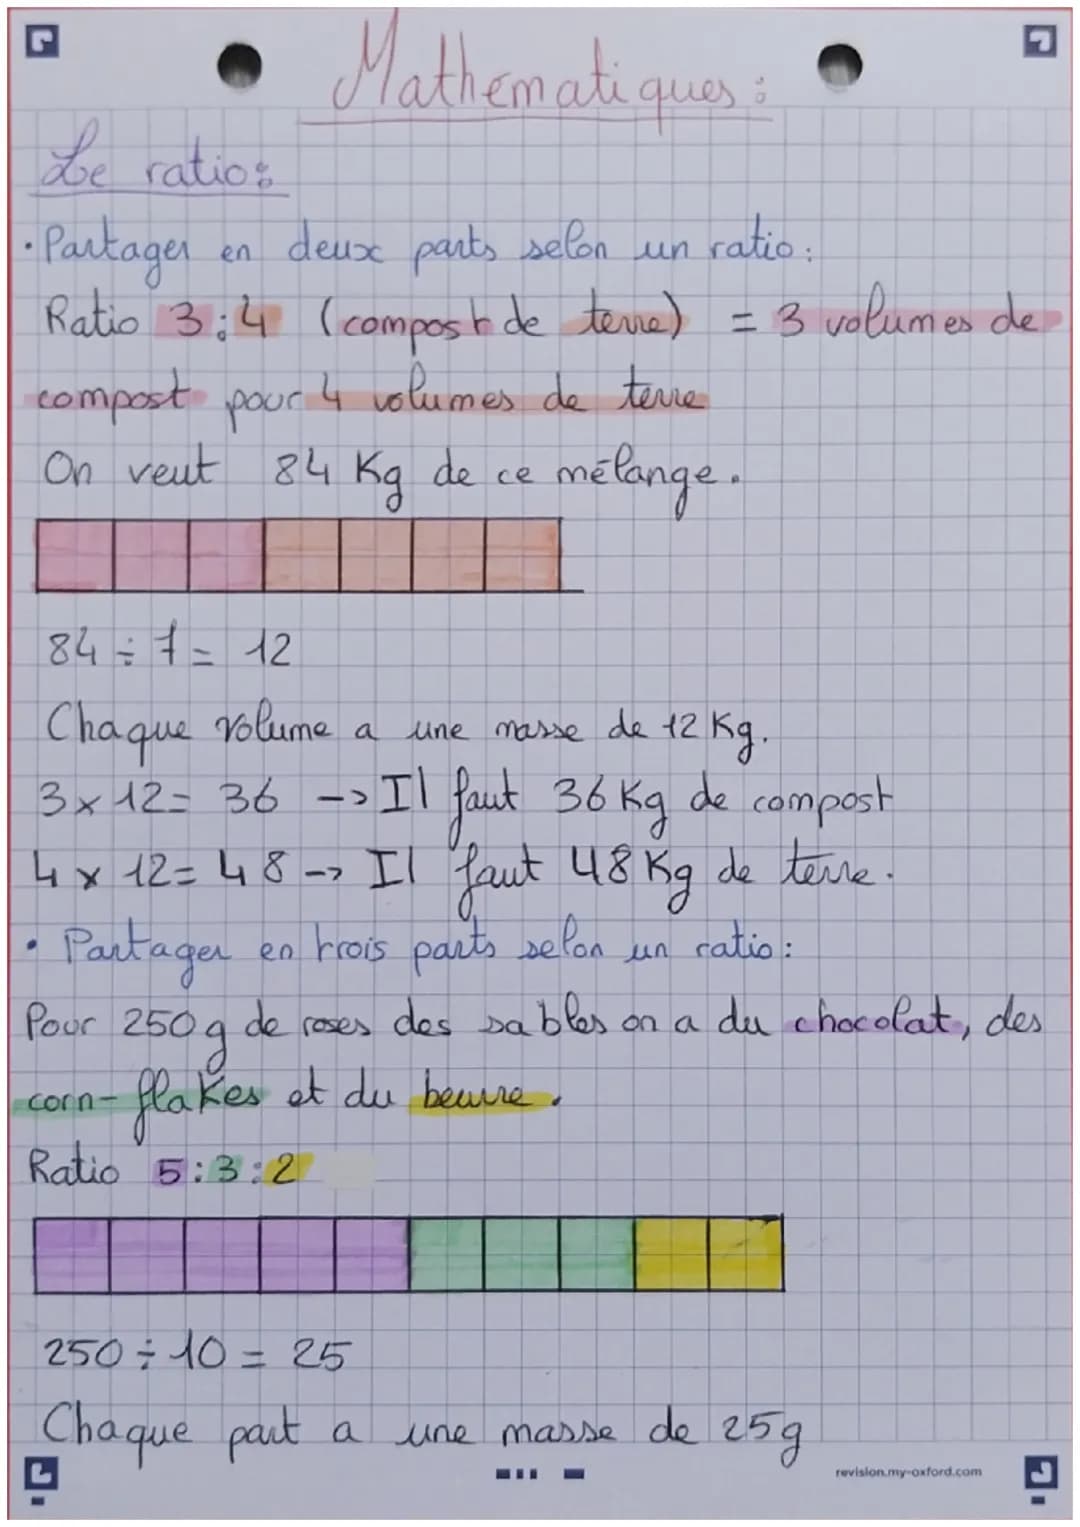 Mathematiques :
Le ratio :
• Partager en deux parts selon un ratio :
Ratio 3 : 4 (compost de terre) = 3 volumes de
compost pour 4 volumes de terre
On veut 84 Kg de ce mélange.
84 ÷ 7 = 12
Chaque volume a une masse de 12 Kg.
3 x 12 = 36 -> Il faut 36 Kg de compost
4 x 12 = 48 -> Il faut 48 Kg de terre.
• Partager en trois parts selon un ratio :
Pour 250 g de roses des sables on a du chocolat, des
corn-flakes et du beurre.
Ratio 5 : 3 : 2
250 ÷ 10 = 25
Chaque part a une masse de 25g
revision.my-oxford.com